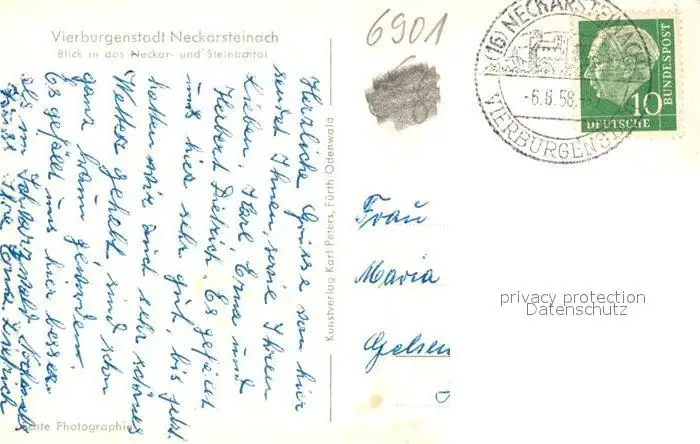 Vierburgenstadt Neckarsteinach
Blick in das Neckar- und Steinachtal
6901
(16) NECKARSTEINACH
-6.8.58.-
VIERBURGENST
10
DEUTSCHE
BUNDESPOST
Herzliche Grüsse von hier
sendet Ihnen, sowie Ihren
Lieben, Karl Erna und
Herbert Dietrich. Es gefällt
uns hier sehr gut, bis jetzt
hatten wir auch sehr schönes
Wetter gehabt, sind schon
ganz braun geworden.
Es gefällt uns hier besser
als im Schwarzwald. Nochmals
Grüsst Ihre Erna Dietrich
Kunstverlag Karl Peters, Fürth Odenwald
Echte Photographie
Frau
Maria
Gelsen
privacy protection
Datenschutz